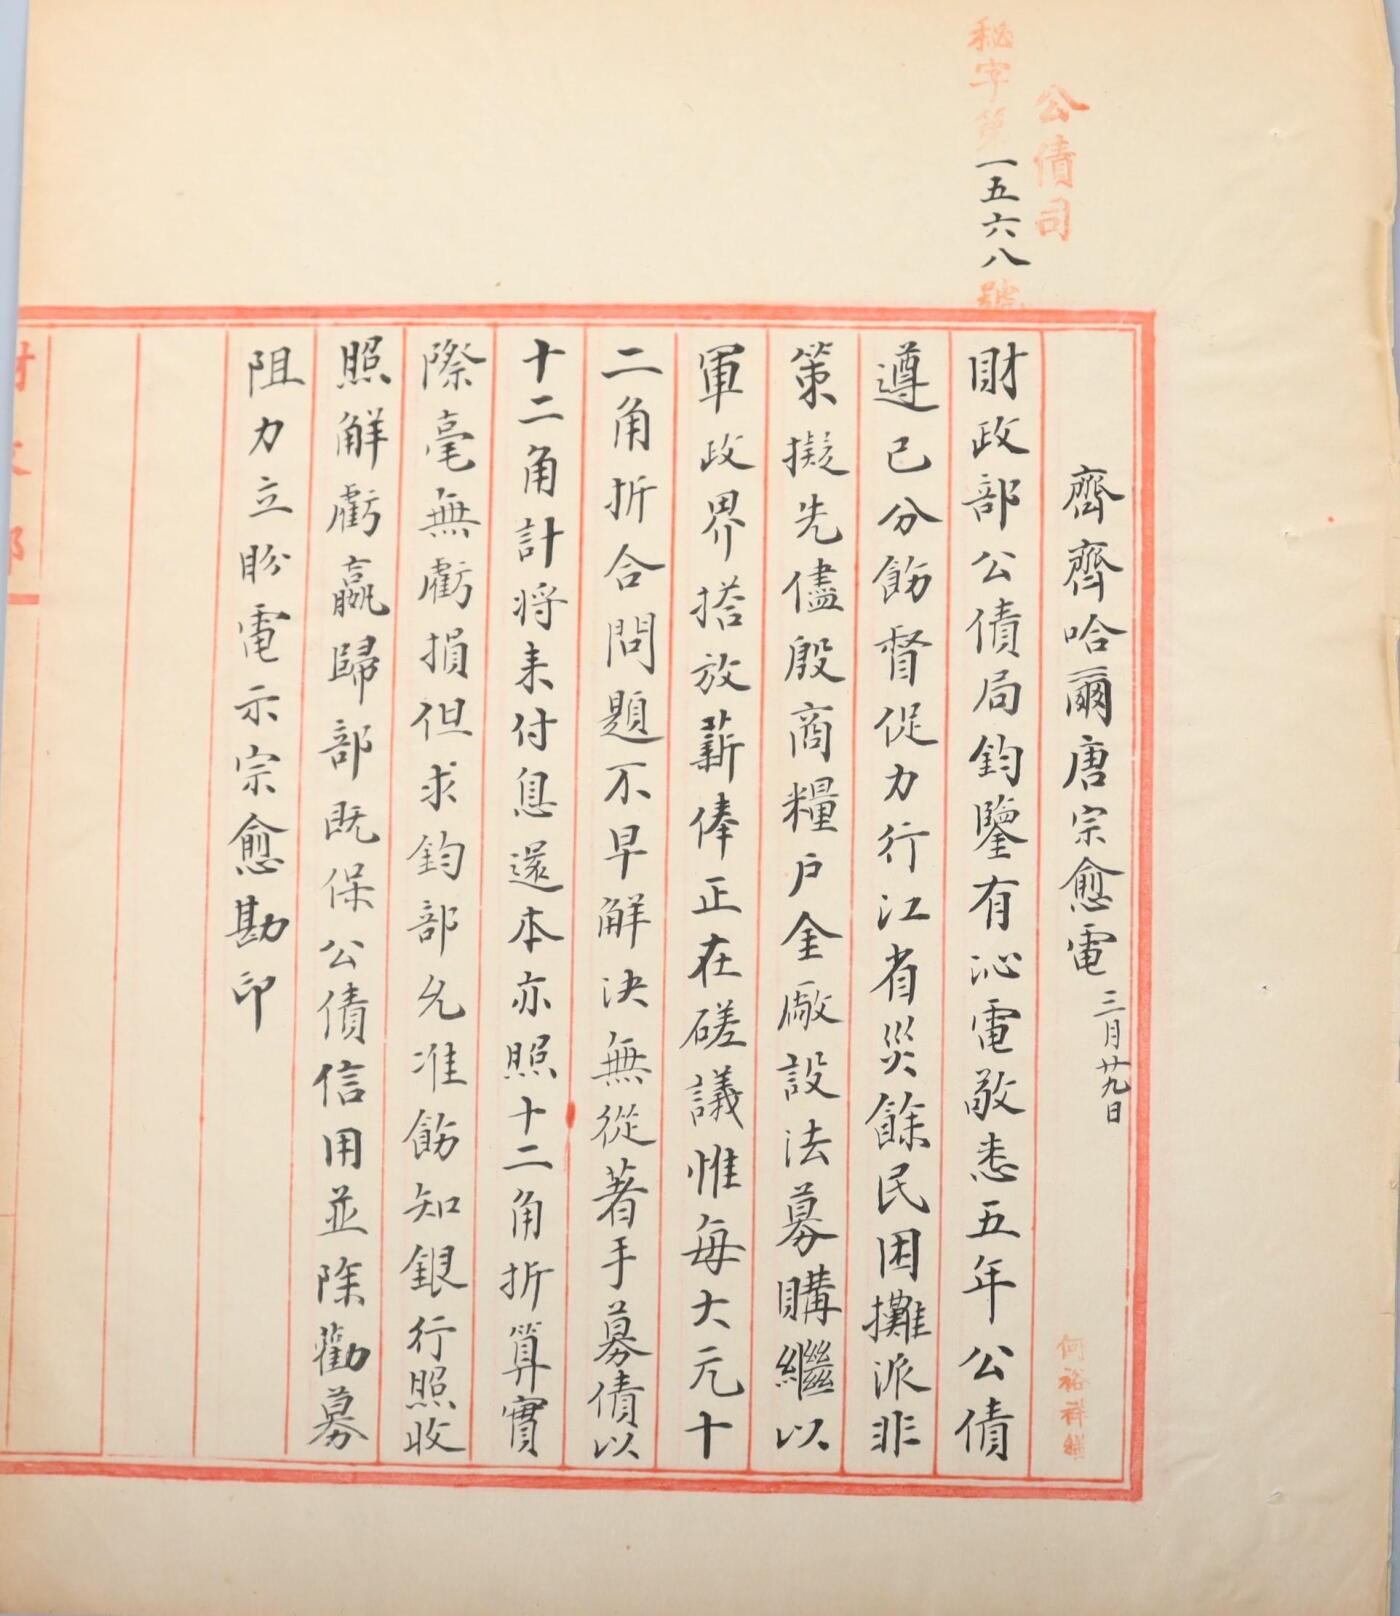 公債司
秘字第一五六八號
齊齊哈爾唐宗愈電 三月廿九日
何裕祥繕
財政部公債局鈞鑒有沁電敬悉五年公債
遵已分飭督促力行江省災餘民困攤派非
策擬先儘殷商糧戶金廠設法募購繼以
軍政界搭放薪俸正在磋議惟每大元十
二角折合問題不早解決無從著手募債以
十二角計將来付息還本亦照十二角折算實
際毫無虧損但求鈞部允准飭知銀行照收
照解虧贏歸部既保公債信用並除勸募
阻力立盼電示宗愈勘印